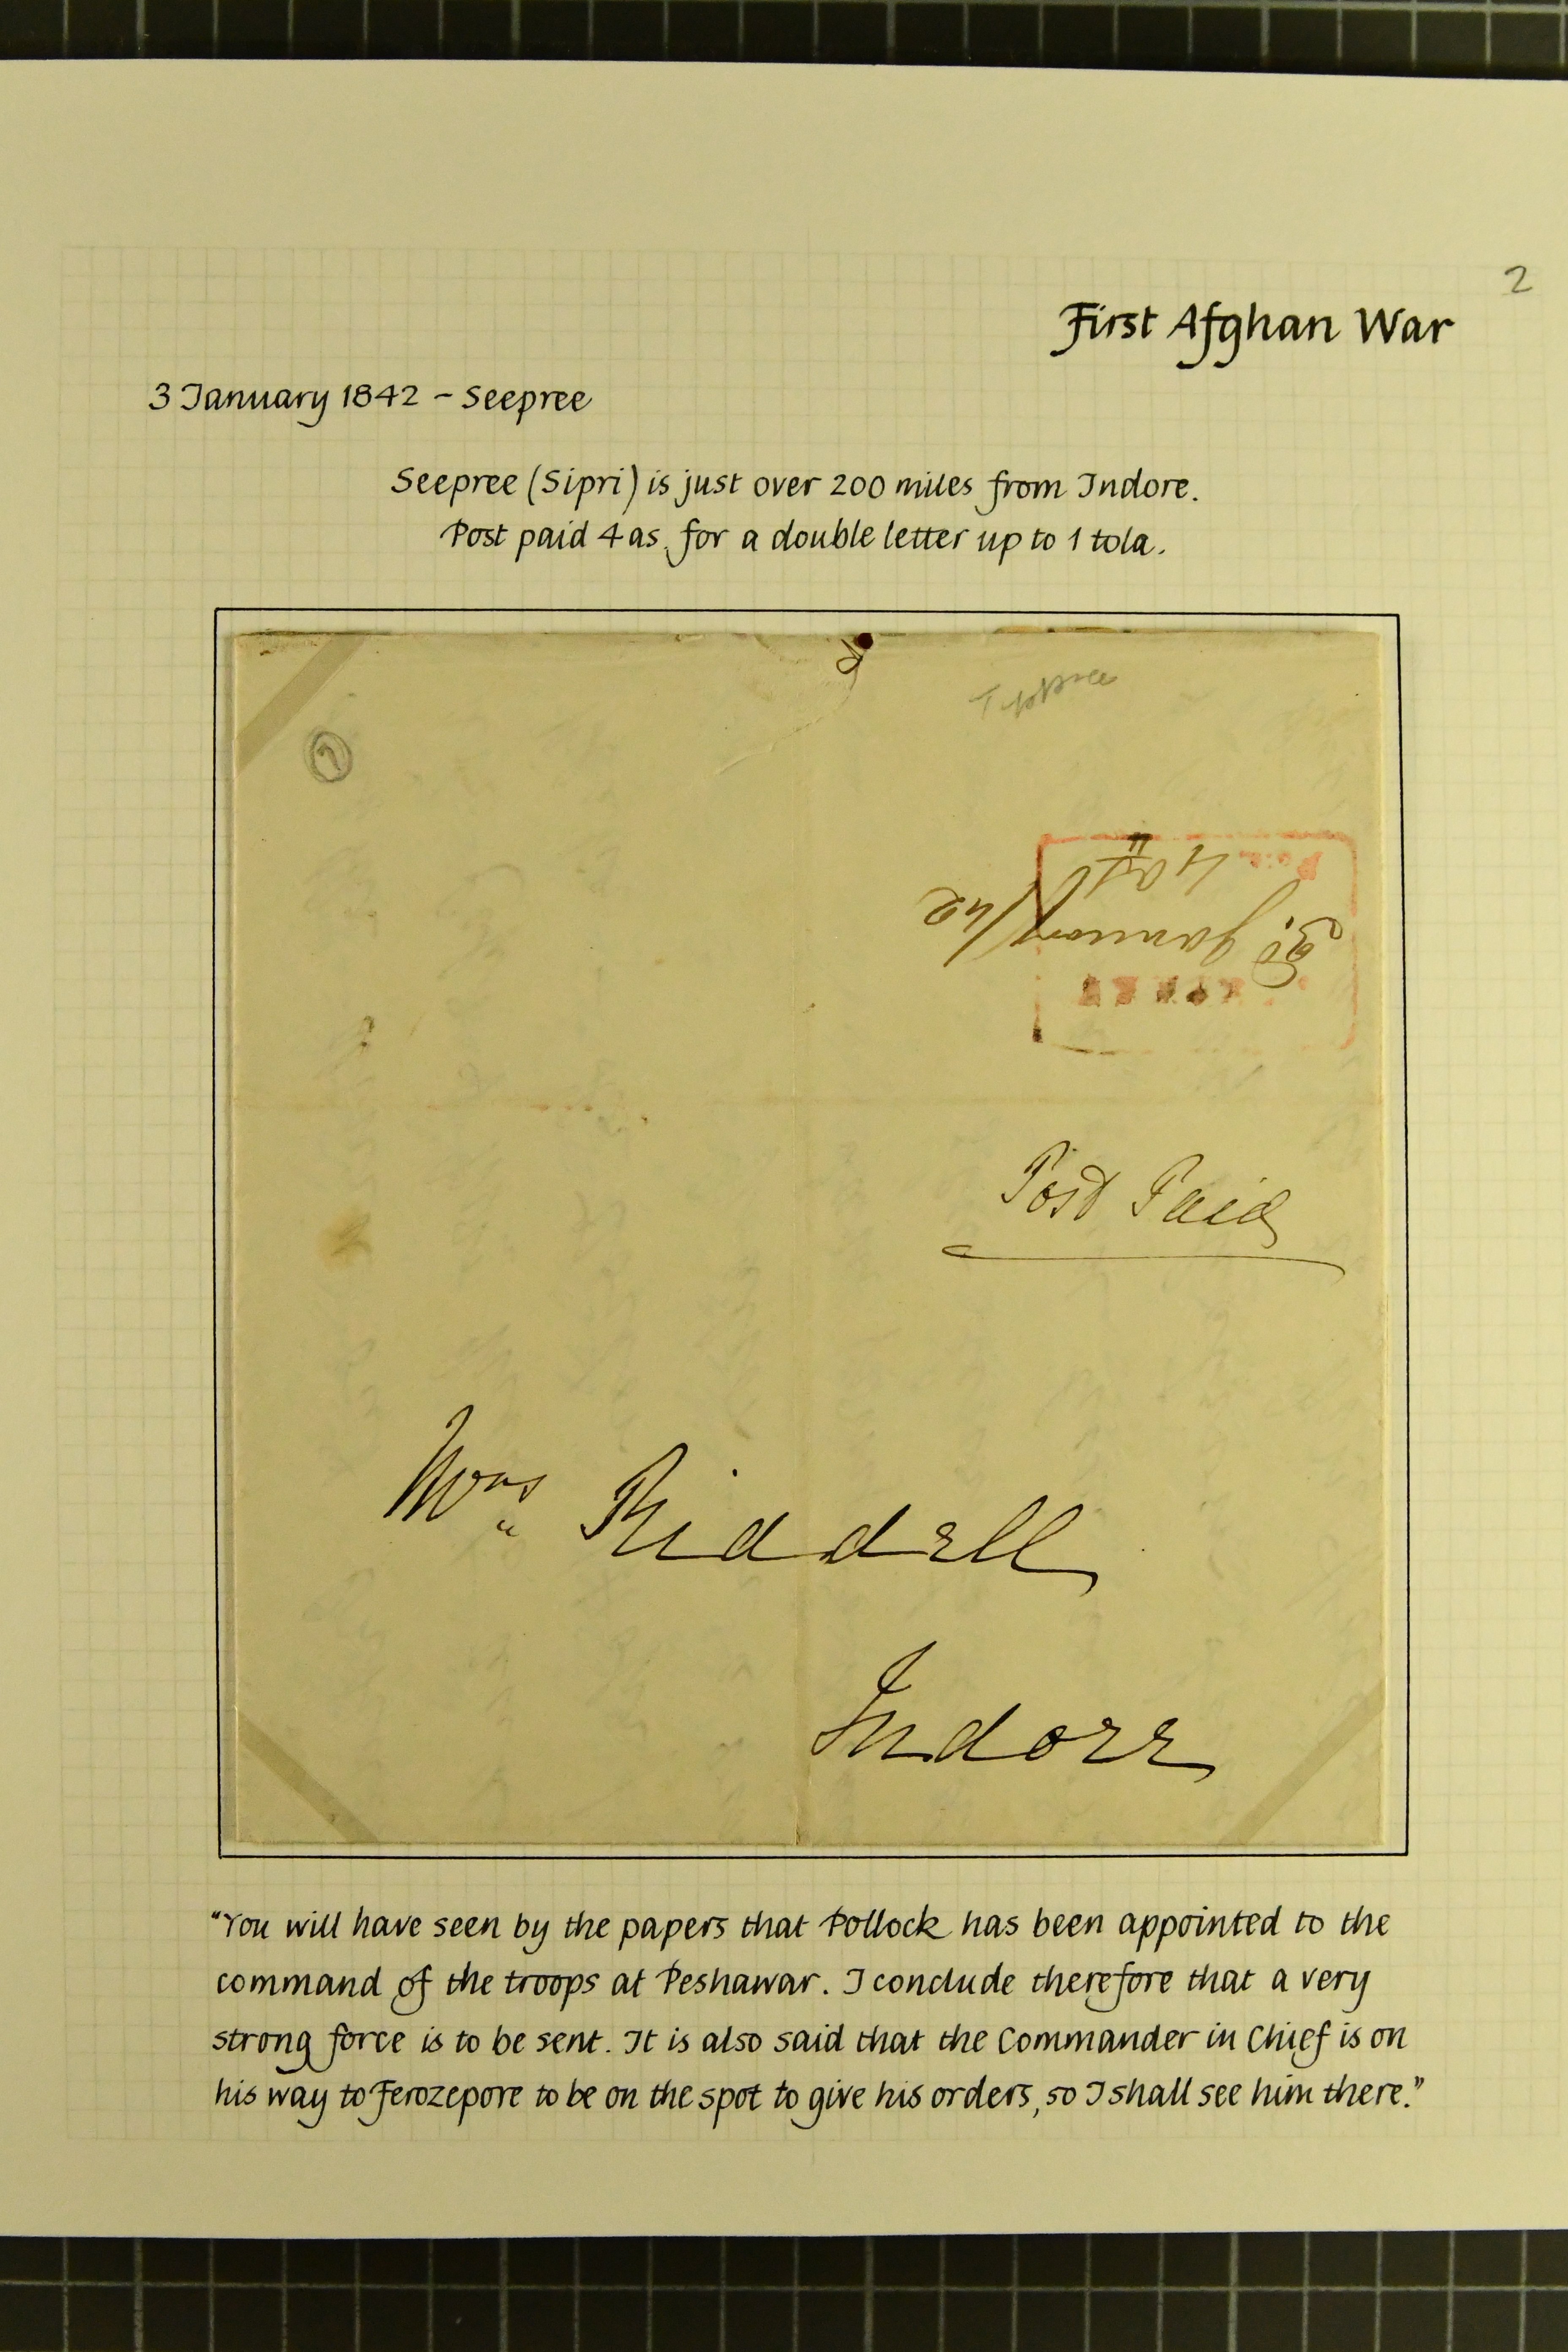 2
First Afghan War
3 January 1842 - Seepree
Seepree (Sipri) is just over 200 miles from Indore.
Post paid 4as. for a double letter up to 1 tola.
Paid 4 as
3d January/42
Post Paid
Mrs Riddell
Indore
"You will have seen by the papers that Pollock has been appointed to the
command of the troops at Peshawar. I conclude therefore that a very
strong force is to be sent. It is also said that the Commander in Chief is on
his way to Ferozepore to be on the spot to give his orders, so I shall see him there."